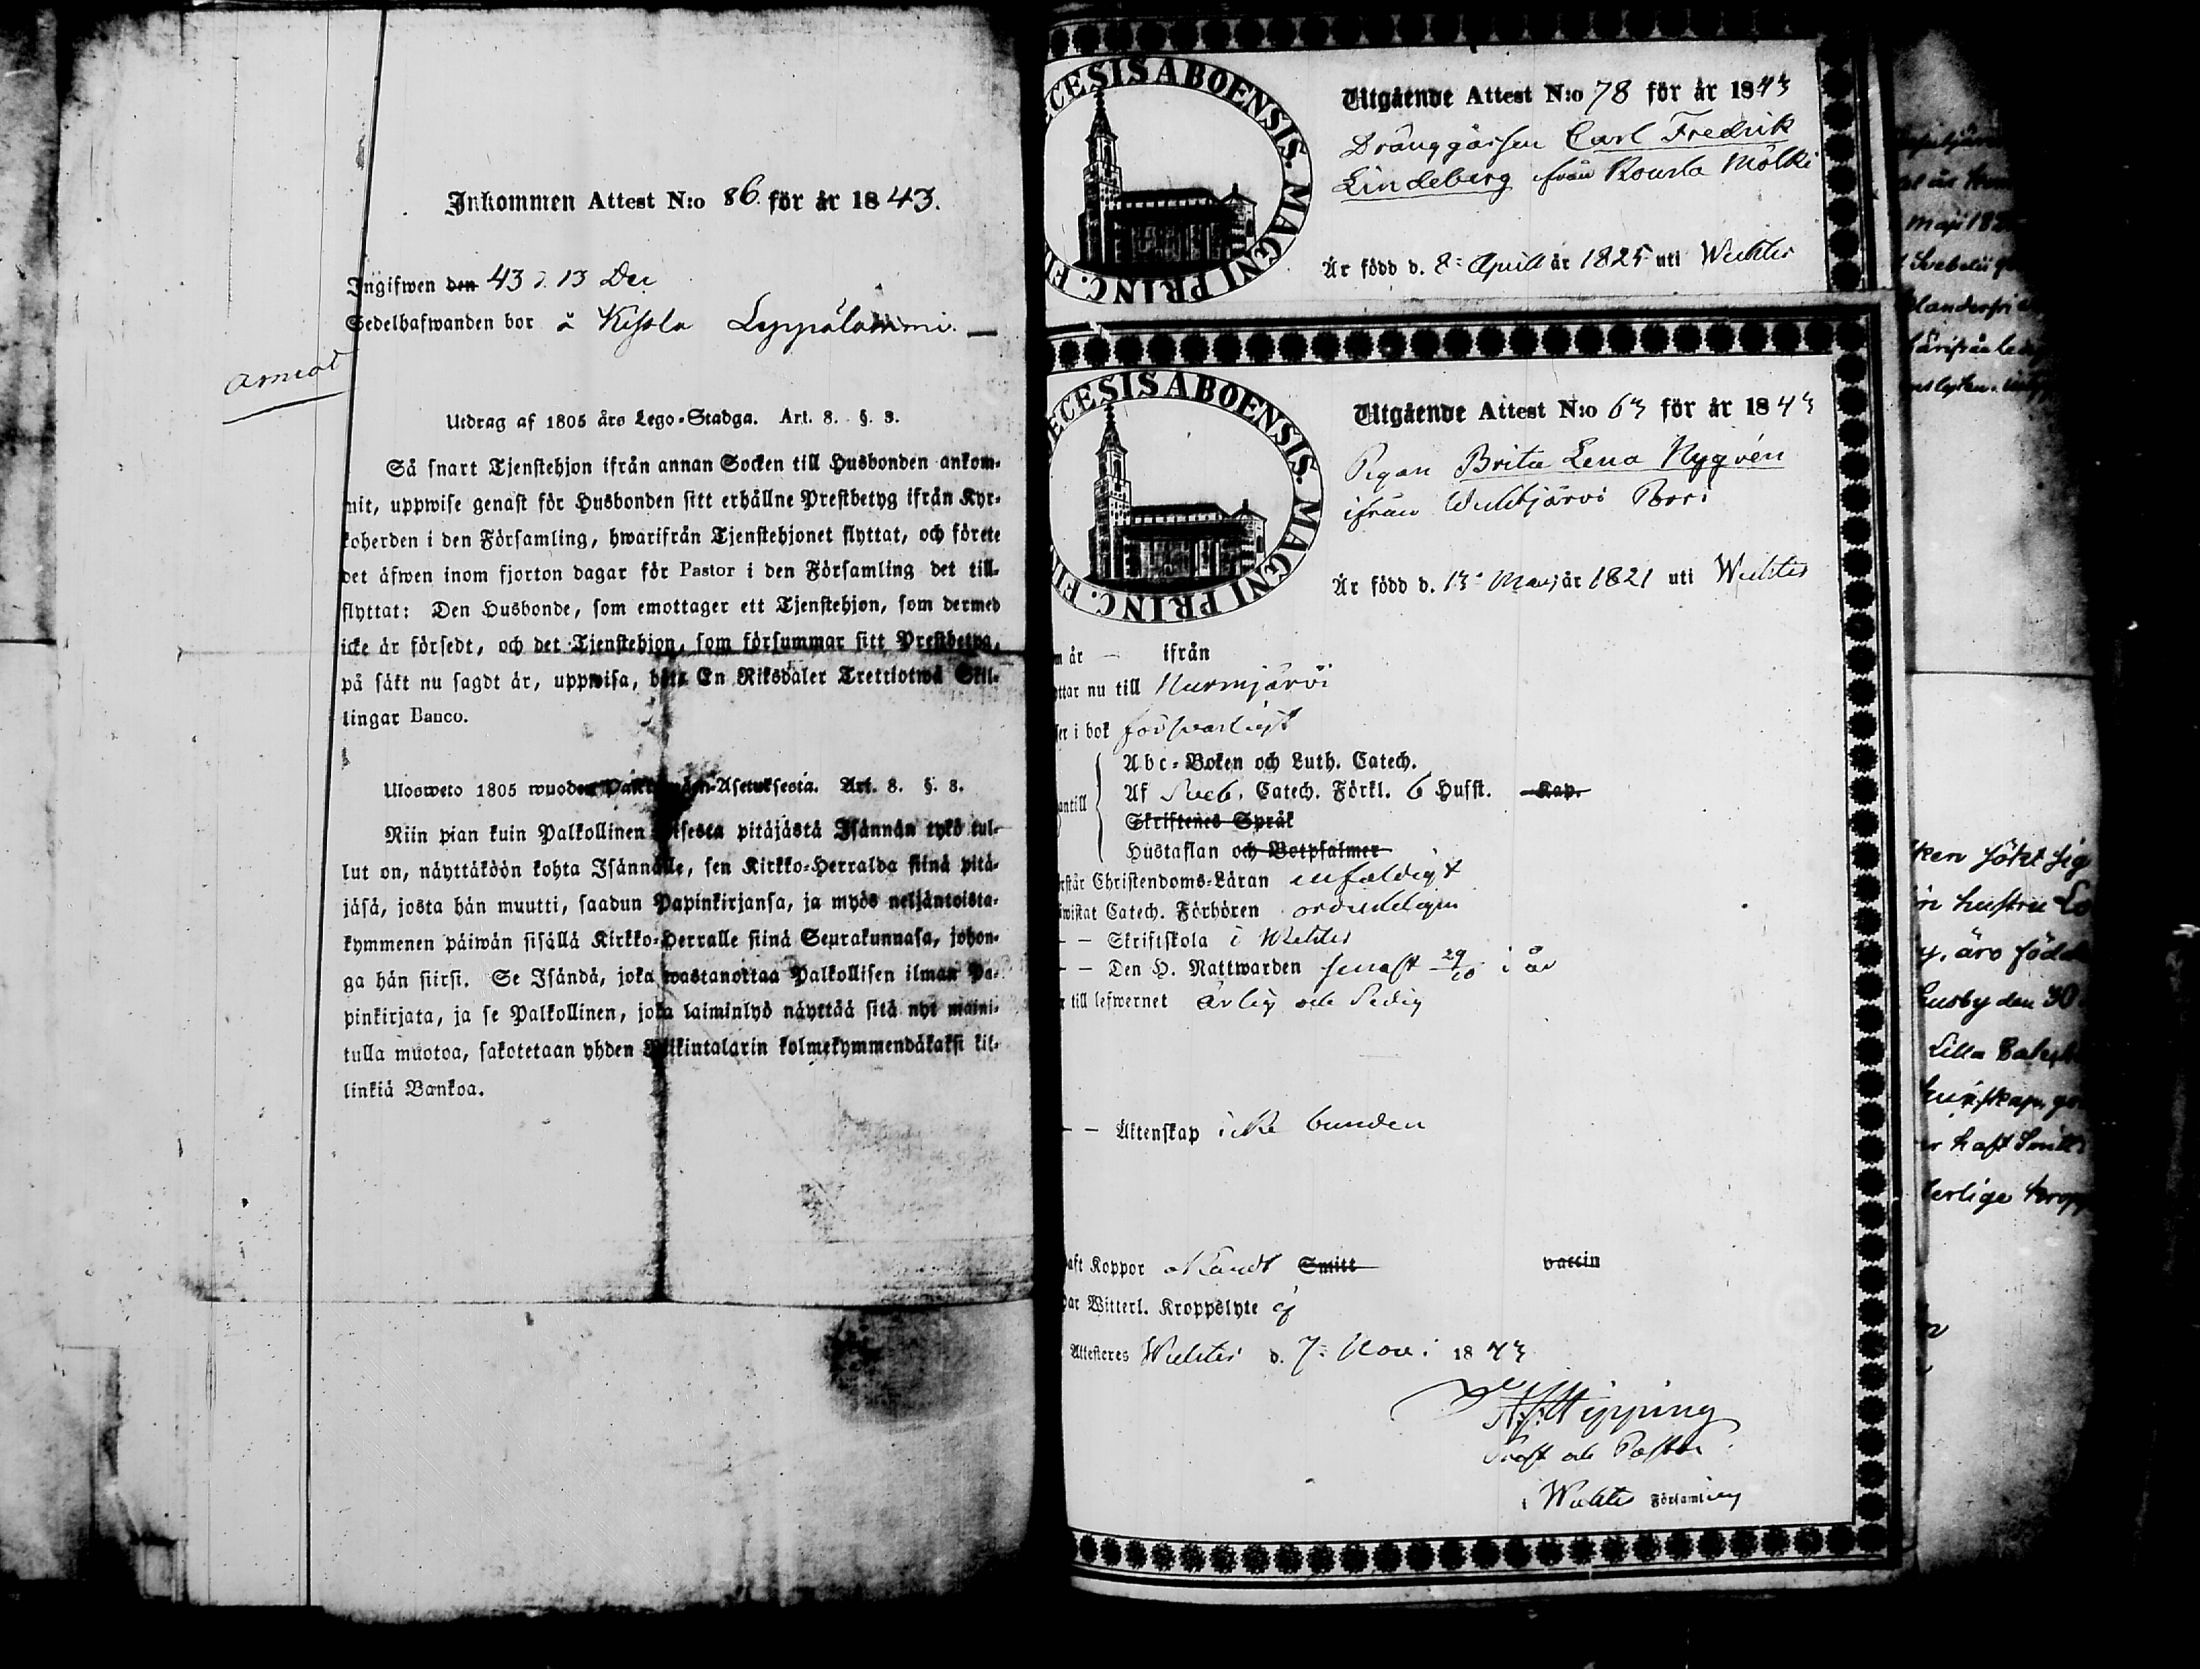 Inkommen Attest N:o 86. för år 1843.
Ingifwen den 43 d. 13 Dec
Sedelhafwanden bor å Kissla Leppälammi.
Utdrag af 1805 års Lego-Stadga. Art. 8. §. 3.
Så snart Tjenstehjon ifrån annan Socken till Husbonden ankom-
mit, uppwise genast för Husbonden sitt erhållne Prestbetyg ifrån Kyr-
koherden i den Församling, hwarifrån Tjenstehjonet flyttat, och förete
det äfwen inom fjorton dagar för Pastor i den Församling det till-
flyttat: Den Husbonde, som emottager ett Tjenstehjon, som dermed
icke är försedt, och det Tjenstehjon, som försummar sitt Prestbetyg,
på sätt nu sagdt är, uppwisa, böte En Riksdaler Trettiotwå Skil-
lingar Banco.
Ulosweto 1805 wuoden Palkkawäen-Asetuksesta. Art. 8. §. 3.
Niin pian kuin Palkollinen toisesta pitäjästä Isännän tykö tul-
lut on, näyttäköön kohta Isännälle, sen Kirkko-Herralda siinä pitä-
jäsä, josta hän muutti, saadun Papinkirjansa, ja myös neljäntoista-
kymmenen päiwän sisällä Kirkko-Herralle siinä Seurakunnasa, johon-
ga hän siirsi. Se Isändä, joka wastanottaa Palkollisen ilman Pa-
pinkirjata, ja se Palkollinen, joka laiminlyö näyttää sitä nyt maini-
tulla muotoa, sakotetaan yhden Riikintalarin kolmekymmendäkaksi kil-
linkiä Bankoa.
DIOECESIS ABOENSIS. MAGNI PRINC. FI
Utgående Attest N:o 78 för år 1843
Dränggåssen Carl Fredrik
Lindeberg från Rourla Mölki
Är född d. 8: April år 1825 uti Wichtis
ECESIS ABOENSIS. MAGNI PRINC. FI
Utgående Attest N:o 63 för år 1843
Pigan Brita Lena Nygvén
ifrån Wichtjärvi Porri
Är född d. 13: Maij år 1821 uti Wichtis
m år — ifrån
ttar nu till Nurmijärvi
ser i bok försvarligt
antill
Abc-Boken och Luth. Catech.
Af Sveb. Catech. Förkl. 6 Hufst. Kap.
Skriftenes Språk
Hustaflan och Botpsalmer
rstår Christendoms-Läran enfaldigt
wistat Catech. Förhören ordentligen
— — Skriftskola i Wichtis
— — Den H. Nattwarden senast 29/10 i år
r till lefwernet ärlig och sedig
— — Äktenskap icke bunden
aft Koppor okändt Smitt vaccin
ar Witterl. Kroppslyte ej
Attesteres Wichtis d. 7: Nov: 1843
Hipping
Prost och Pastor
i Wichtis Församling
maji 182
ken sökt sig
n hustru Lo
y, äro födde
husby den 30
Lilla
r haft Smitt
terlige kropp